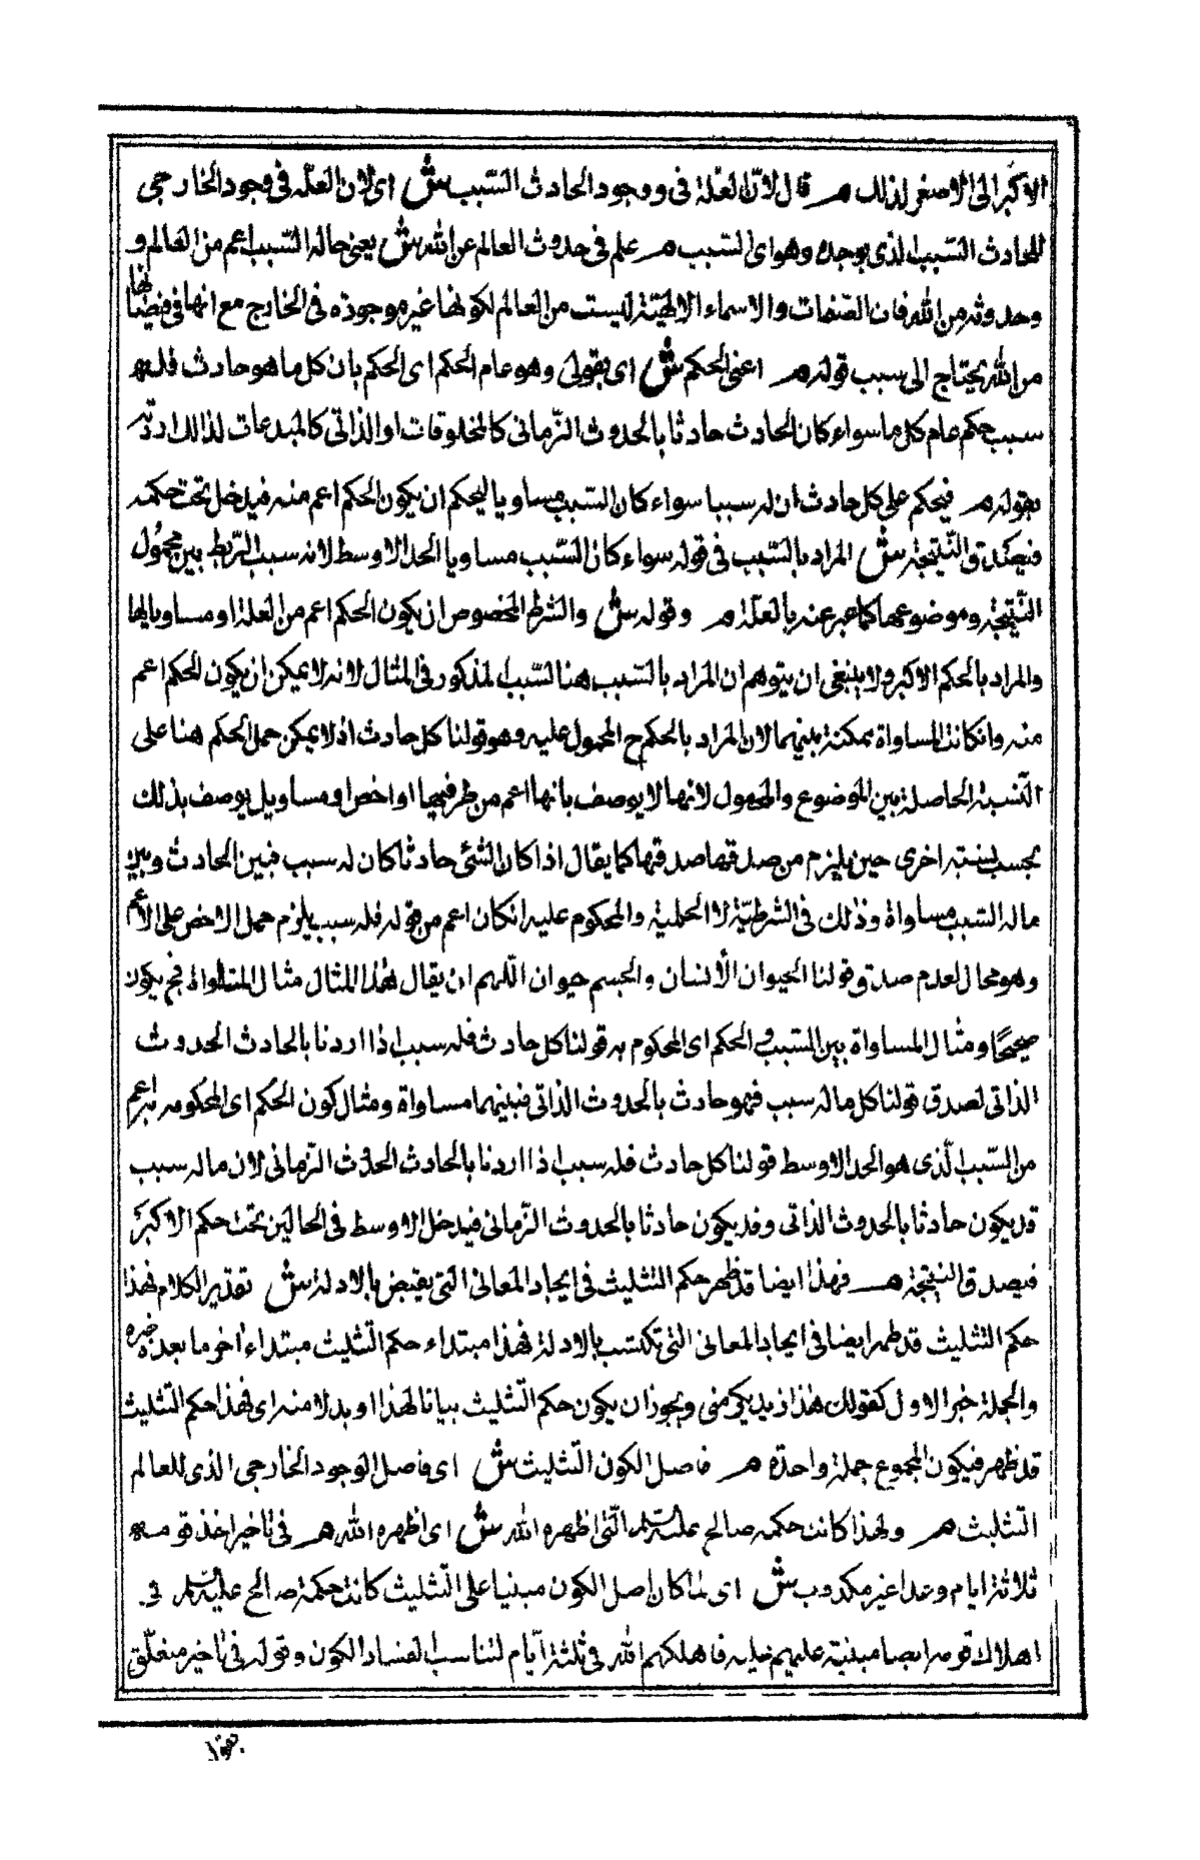 الاكبر الى الاصغر لذلك م قال لان العلة فى ووجود الحادث السبب ش اى لان العلة فى وجود الخارجى
للحادث السبب الذى يوجده وهو اى السبب م علم فى حدوث العالم عن الله ش يعنى حالة السبب اعم من العالم و
وحدوثه من الله فان الصفات والاسماء الالهية ليست من العالم لكونها غير موجودة فى الخارج مع انها فى فيضانها
من الله يحتاج الى سبب قوله م اعنى الحكم ش اى بقولى وهو عام الحكم اى الحكم بان كل ما هو حادث فله
سبب حكم عام كل ما سواء كان الحادث حادثا بالحدوث الزمانى كالمخلوقات او الذاتى كالمبدعات لذالك اردته
بقوله م فيحكم على كل حادث ان له سببا سواء كان السبب مساويا للحكم ان يكون الحكم اعم منه فيدخل تحت حكمه
فيصدق النتيجة ش المراد بالسبب فى قوله سواء كان السبب مساويا الحد الاوسط لانه سبب الربط بين محمول
النتيجة وموضوعها كما عبر عنه بالعلة م وقوله ش والشرط المخصوص ان يكون الحكم اعم من العلة او مساويا لها
والمراد بالحكم الاكبر ولا ينبغى ان يتوهم ان المراد بالسبب هنا السبب المذكور فى المثال لانه لا يمكن ان يكون الحكم اعم
منه وان كانت المساواة ممكنة بينهما لان المراد بالحكم ح المحمول عليه وهو قولنا كل حادث اذ لا يمكن حمل الحكم هنا على
النسبة الحاصلة بين الموضوع والمحمول لانها لا يوصف بانها اعم من طرفيها او اخص او مساو بل يوصف بذلك
بحسب نسبة اخرى حين يلزم من صدقها صدقها كما يقال اذا كان الشئ حادثا كان له سبب فبين الحادث وبين
ماله السبب مساواة وذلك فى الشرطية لا الحملية والمحكوم عليه ان كان اعم من قوله فله سبب يلزم حمل الاخص على الاعم
وهو محال لعدم صدق قولنا الحيوان الانسان والجسم حيوان اللهم ان يقال هذا المثال مثال المساواة فح يكون
صحيحا ومثال المساواة بين السبب والحكم اى المحكوم به قولنا كل حادث فله سبب اذا اردنا بالحادث الحدوث
الذاتى لصدق قولنا كل ماله سبب فهو حادث بالحدوث الذاتى فبينهما مساواة ومثال كون الحكم اى المحكوم به اعم
من السبب الذى هو الحد الاوسط قولنا كل حادث فله سبب اذا اردنا بالحادث الحادث الزمانى لان ماله سبب
قد يكون حادثا بالحدوث الذاتى وقد يكون حادثا بالحدوث الزمانى فيدخل الاوسط فى الحالين تحت حكم الاكبر
فيصدق النتيجة م فهذا ايضا قد ظهر حكم التثليث فى ايجاد المعانى التى يقتنص بالادلة ش تقدير الكلام فهذا
حكم التثليث قد ظهر ايضا فى ايجاد المعانى التى تكتسب بالادلة فهذا مبتداء حكم التثليث مبتداء اخر ما بعده خبره
والجملة خبر الاول كقولك هذا زيد يكرمنى ويجوز ان يكون حكم التثليث بيانا لهذا او بدلا منه اى فهذا حكم التثليث
قد ظهر فيكون المجموع جملة واحدة م فاصل الكون التثليث ش اى فاصل الوجود الخارجى الذى للعالم
التثليث م ولهذا كانت حكمة صالح عليه السلم التى اظهره الله ش اى اظهره الله م فى تاخير اخذ قومه
ثلاثة ايام وعدا غير مكذوب ش اى لما كان اصل الكون مبنيا على التثليث كانت حكمة صالح عليه السلم فى
اهلاك قومه ايضا مبنية عليه فاهلكهم الله فى ثلثة ايام لتناسب لفساد الكون وقوله فى تاخير متعلق
بقوله